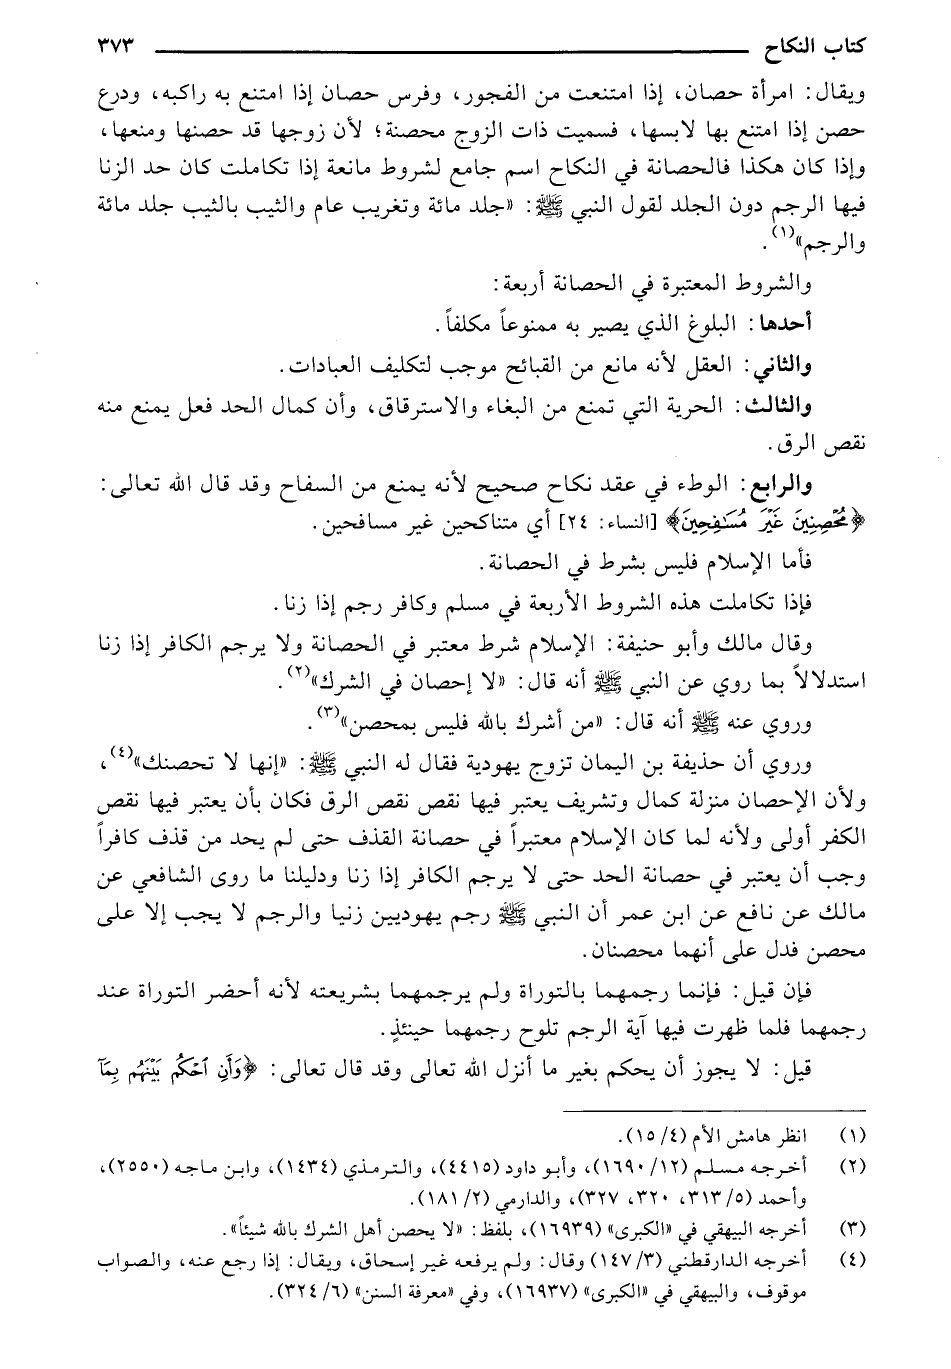 كتاب النكاح ٣٧٣
ويقال: امرأة حصان، إذا امتنعت من الفجور، وفرس حصان إذا امتنع به راكبه، ودرع
حصن إذا امتنع بها لابسها، فسميت ذات الزوج محصنة؛ لأن زوجها قد حصنها ومنعها،
وإذا كان هكذا فالحصانة في النكاح اسم جامع لشروط مانعة إذا تكاملت كان حد الزنا
فيها الرجم دون الجلد لقول النبي ﷺ: «جلد مائة وتغريب عام والثيب بالثيب جلد مائة
والرجم»(١).
والشروط المعتبرة في الحصانة أربعة:
أحدها: البلوغ الذي يصير به ممنوعاً مكلفاً.
والثاني: العقل لأنه مانع من القبائح موجب لتكليف العبادات.
والثالث: الحرية التي تمنع من البغاء والاسترقاق، وأن كمال الحد فعل يمنع منه
نقص الرق.
والرابع: الوطء في عقد نكاح صحيح لأنه يمنع من السفاح وقد قال الله تعالى:
﴿مُّحْصِنِينَ غَيْرَ مُسَٰفِحِينَ﴾ [النساء: ٢٤] أي متناكحين غير مسافحين.
فأما الإسلام فليس بشرط في الحصانة.
فإذا تكاملت هذه الشروط الأربعة في مسلم وكافر رجم إذا زنا.
وقال مالك وأبو حنيفة: الإسلام شرط معتبر في الحصانة ولا يرجم الكافر إذا زنا
استدلالاً بما روي عن النبي ﷺ أنه قال: «لا إحصان في الشرك»(٢).
وروي عنه ﷺ أنه قال: «من أشرك بالله فليس بمحصن»(٣).
وروي أن حذيفة بن اليمان تزوج يهودية فقال له النبي ﷺ: «إنها لا تحصنك»(٤)،
ولأن الإحصان منزلة كمال وتشريف يعتبر فيها نقص نقص الرق فكان بأن يعتبر فيها نقص
الكفر أولى ولأنه لما كان الإسلام معتبراً في حصانة القذف حتى لم يحد من قذف كافراً
وجب أن يعتبر في حصانة الحد حتى لا يرجم الكافر إذا زنا ودليلنا ما روى الشافعي عن
مالك عن نافع عن ابن عمر أن النبي ﷺ رجم يهوديين زنيا والرجم لا يجب إلا على
محصن فدل على أنهما محصنان.
فإن قيل: فإنما رجمهما بالتوراة ولم يرجمهما بشريعته لأنه أحضر التوراة عند
رجمهما فلما ظهرت فيها آية الرجم تلوح رجمهما حينئذٍ.
قيل: لا يجوز أن يحكم بغير ما أنزل الله تعالى وقد قال تعالى: ﴿وَأَنِ ٱحْكُم بَيْنَهُم بِمَآ
(١) انظر هامش الأم (٤/ ١٥).
(٢) أخرجه مسلم (١٢/ ١٦٩٠)، وأبو داود (٤٤١٥)، والترمذي (١٤٣٤)، وابن ماجه (٢٥٥٠)،
وأحمد (٥/ ٣١٣، ٣٢٠، ٣٢٧)، والدارمي (٢/ ١٨١).
(٣) أخرجه البيهقي في «الكبرى» (١٦٩٣٩)، بلفظ: «لا يحصن أهل الشرك بالله شيئاً».
(٤) أخرجه الدارقطني (٣/ ١٤٧) وقال: ولم يرفعه غير إسحاق، ويقال: إذا رجع عنه، والصواب
موقوف، والبيهقي في «الكبرى» (١٦٩٣٧)، وفي «معرفة السنن» (٦/ ٣٢٤).